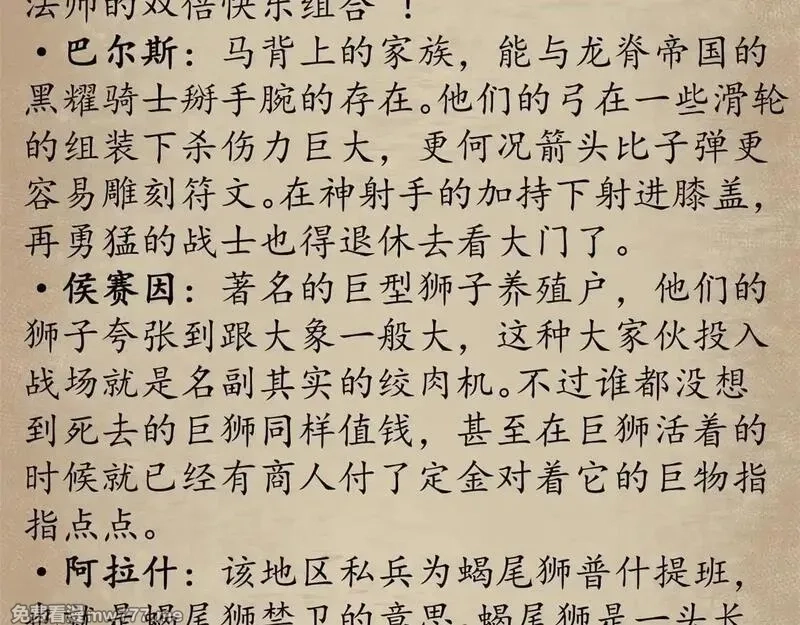 法师的双倍快乐组合”！
•巴尔斯：马背上的家族，能与龙脊帝国的
黑耀骑士掰手腕的存在。他们的弓在一些滑轮
的组装下杀伤力巨大，更何况箭头比子弹更
容易雕刻符文。在神射手的加持下射进膝盖，
再勇猛的战士也得退休去看大门了。
•侯赛因：著名的巨型狮子养殖户，他们的
狮子夸张到跟大象一般大，这种大家伙投入
战场就是名副其实的绞肉机。不过谁都没想
到死去的巨狮同样值钱，甚至在巨狮活着的
时候就已经有商人付了定金对着它的巨物指
指点点。
•阿拉什：该地区私兵为蝎尾狮普什提班，
也就是蝎尾狮禁卫的意思。蝎尾狮是一头长
免费看漫mw77.me